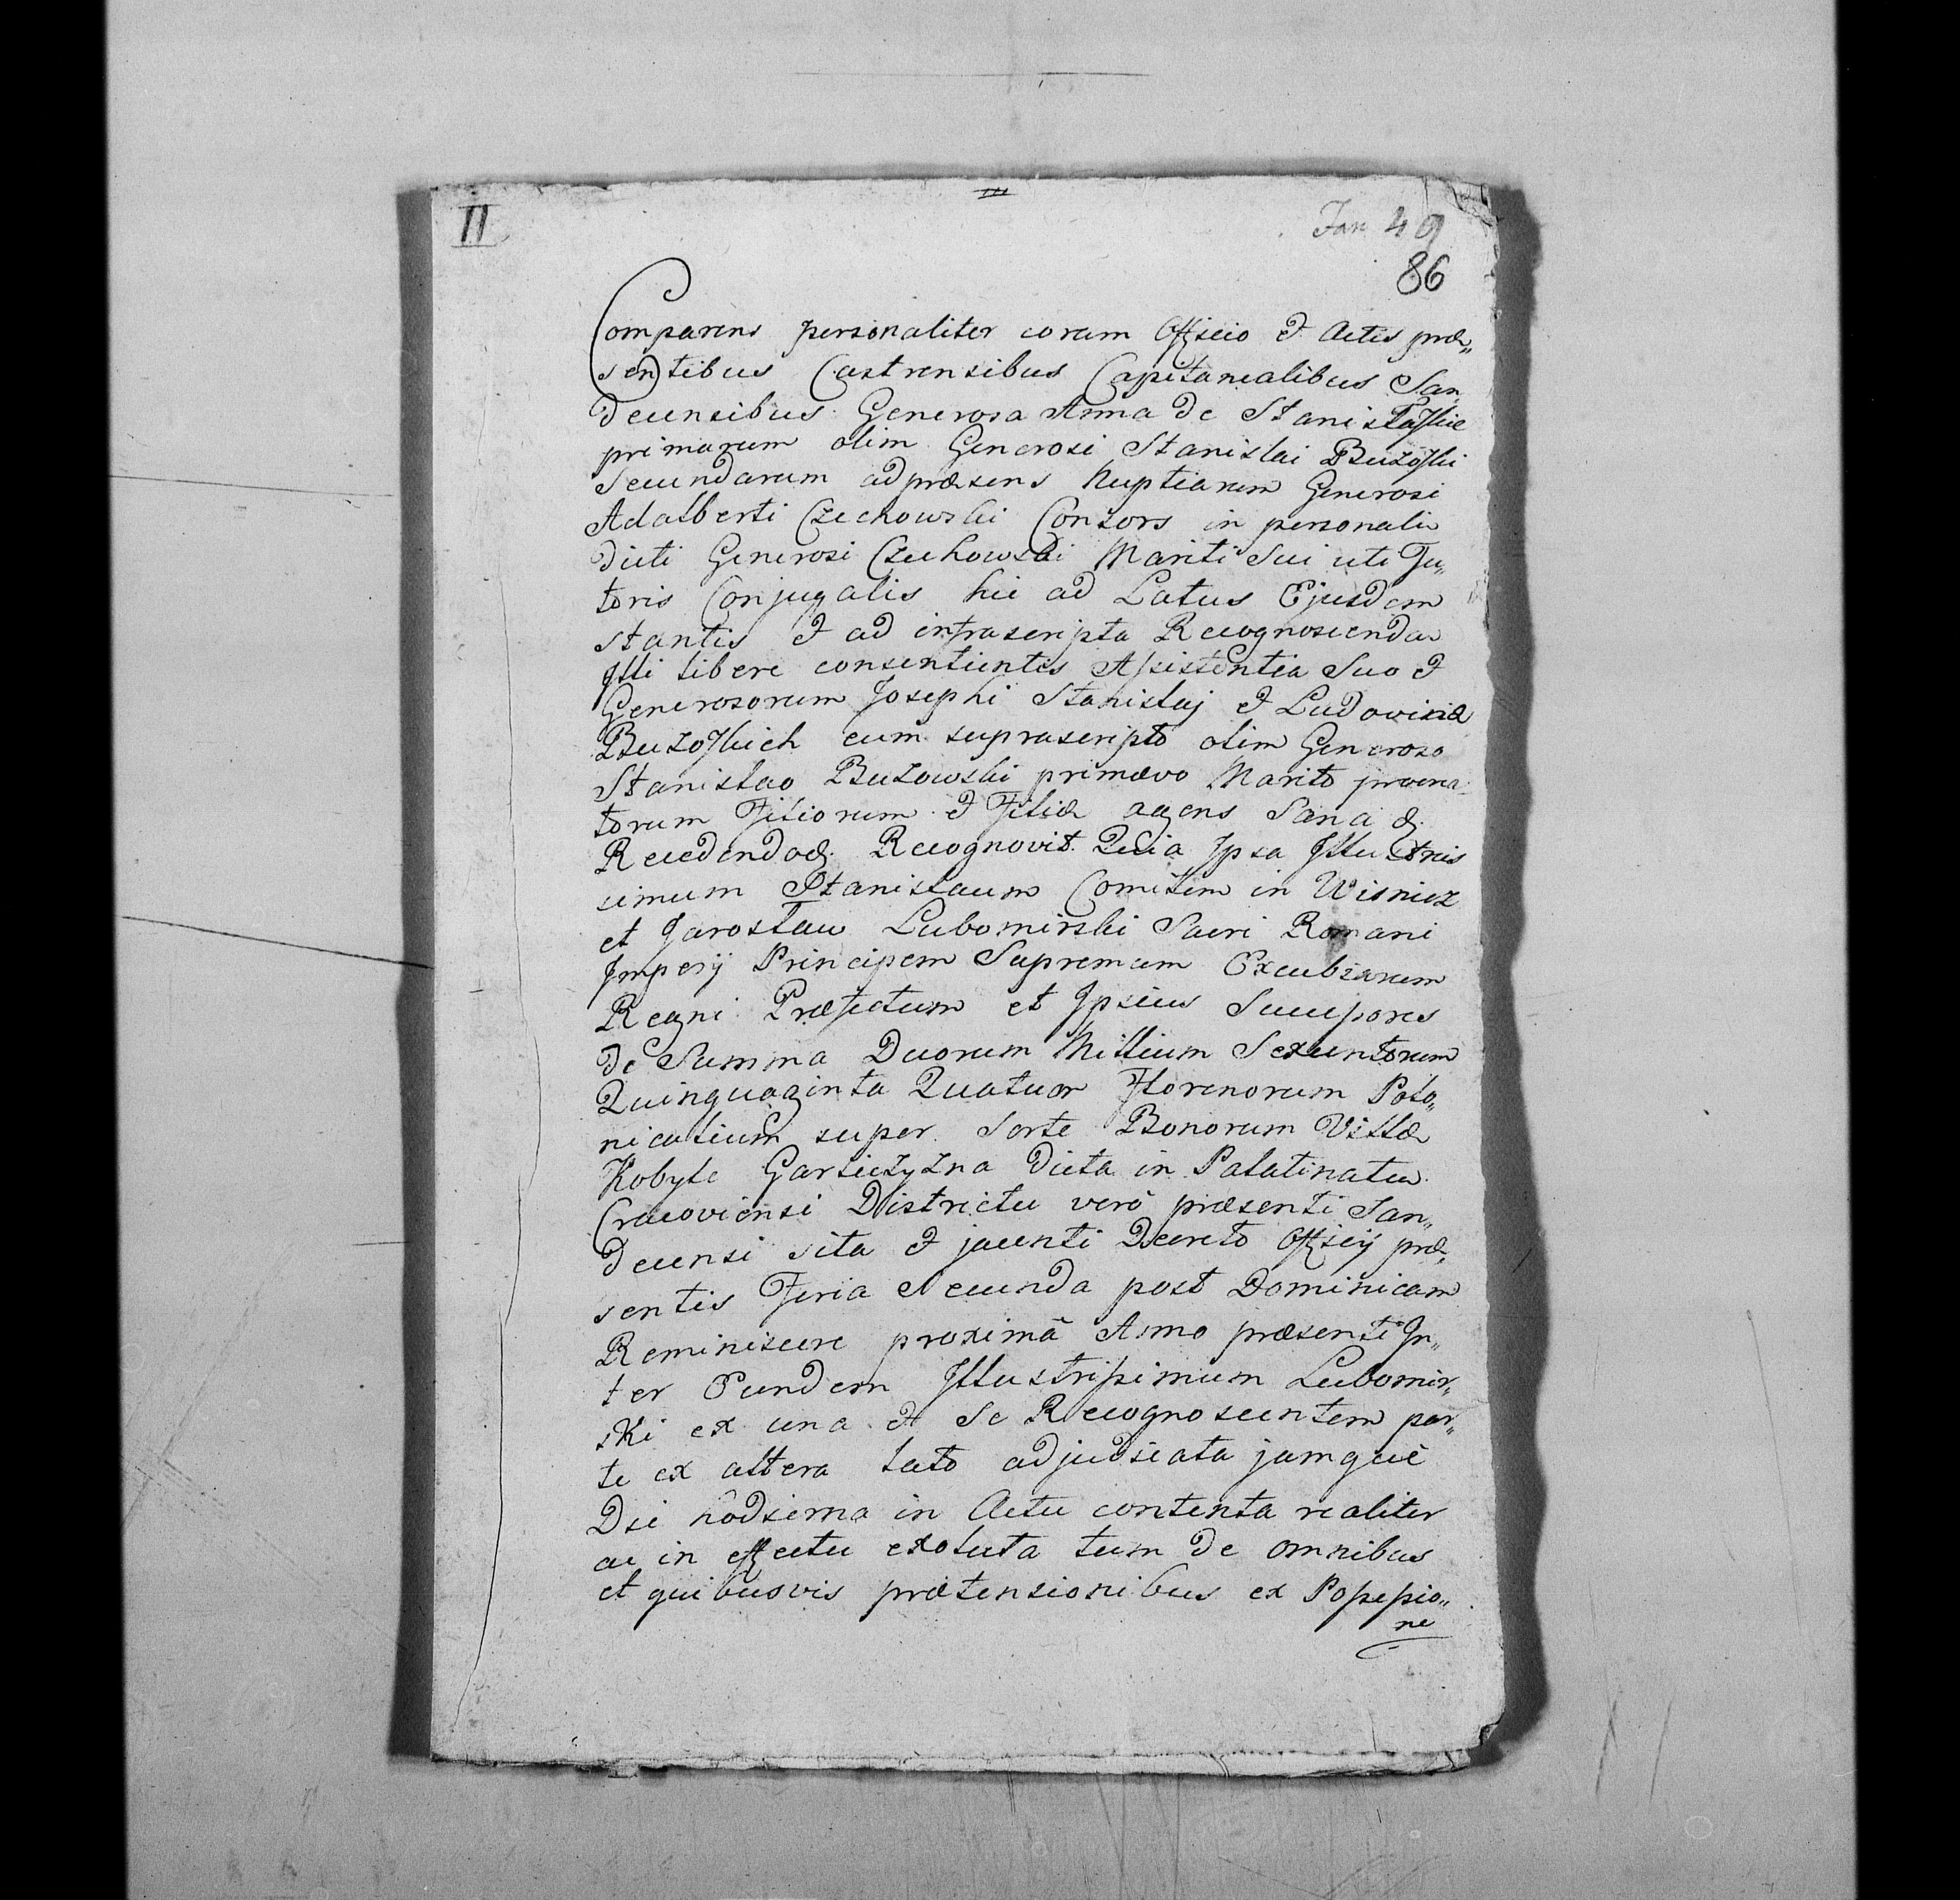 II
Fas 49
86
Comparens personaliter coram Officio et Actis præ„
sentibus Castrensibus Capitanealibus San„
decensibus Generosa Anna de Stanisławskie
primarum olim Generosi Stanislai Buzowski
Secundarum ad præsens Nuptiarum Generosi
Adalberti Czechowski Consors in personali
dicti Generosi Czechowski Mariti Sui uti Tu„
toris Conjugalis hic ad Latus Ejusdem
stantis et ad infrascripta Recognoscenda
Illi libere consentientis Assistentia Suo et
Generosorum Josephi Stanislaj et Ludovicæ
Buzowskich cum suprascripto olim Generoso
Stanislao Buzowski primævo Marito procrea„
torum Filiorum et Filiæ agens Sana &
Recedendoq. Recognovit. Quia Ipsa Illustris
simum Stanislaum Comitem in Wisnicz
et Jarosław Lubomirski Sacri Romani
Imperij Principem Supremum Excubiarum
Regni Præfectum et Ipsius Succesores
de Summa Duorum Millium Sexcentorum
Quinquaginta Quatuor Florenorum Polo„
nicalium super Sorte Bonorum Villæ
Kobyle Garsiczyzna dicta in Palatinatu
Cracoviensi Districtu verò præsenti San„
decensi sita et jacenti Decreto Officij præ„
sentis Feria Secunda post Dominicam
Reminiscere proximâ Anno præsenti In„
ter Eundem Illustrissimum Lubomir„
ski ex una et Se Recognoscentem par„
te ex altera lato adjudicata jamque
Die hodierna in Actu contenta realiter
ac in effectu exoluta tum de omnibus
et quibusvis prætensionibus ex Possessio„
ne